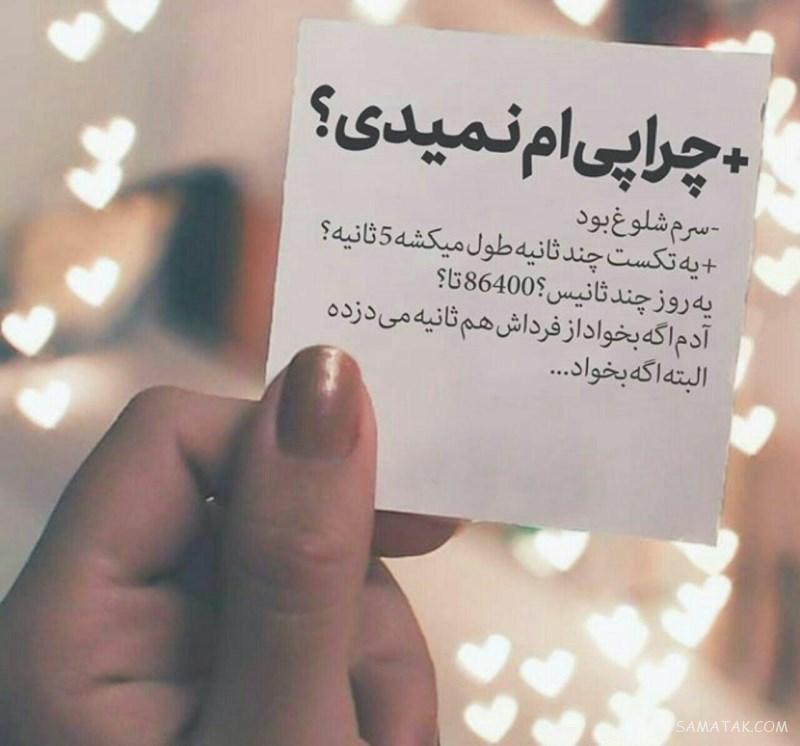 +چرا پی ام نمیدی؟
-سرم شلوغ بود
+یه تکست چند ثانیه طول میکشه 5 ثانیه؟
یه روز چند ثانیس؟ 86400 تا؟
آدم اگه بخواد از فرداش هم ثانیه می دزده
البته اگه بخواد...
SAMATAK.COM